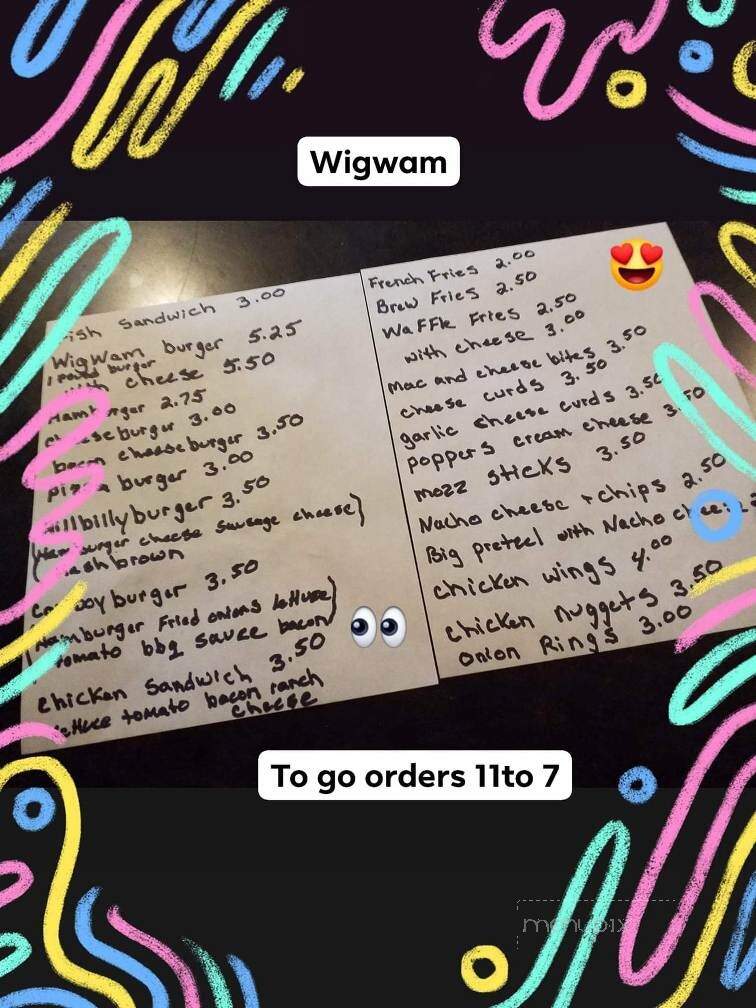 Wigwam
ish Sandwich 3.00
WigWam burger 5.25
1 pound burger
with cheese 5.50
Hamburger 2.75
cheeseburger 3.00
bacon cheeseburger 3.50
pizza burger 3.00
Hillbilly burger 3.50
(Hamburger cheese sausage cheese)
(Hashbrown
Cowboy burger 3.50
(Hamburger Fried onions lettuce)
tomato bbq sauce bacon)
Chicken Sandwich 3.50
lettuce tomato bacon ranch
cheese
French Fries 2.00
Brew Fries 2.50
Waffle Fries 2.50
with cheese 3.00
mac and cheese bites 3.50
cheese curds 3.50
garlic cheese curds 3.50
poppers cream cheese 3.50
mozz sticks 3.50
Nacho cheese + chips 2.50
Big pretzel with Nacho cheese
chicken wings 4.00
chicken nuggets 3.50
onion Rings 3.00
To go orders 11to 7
menupix